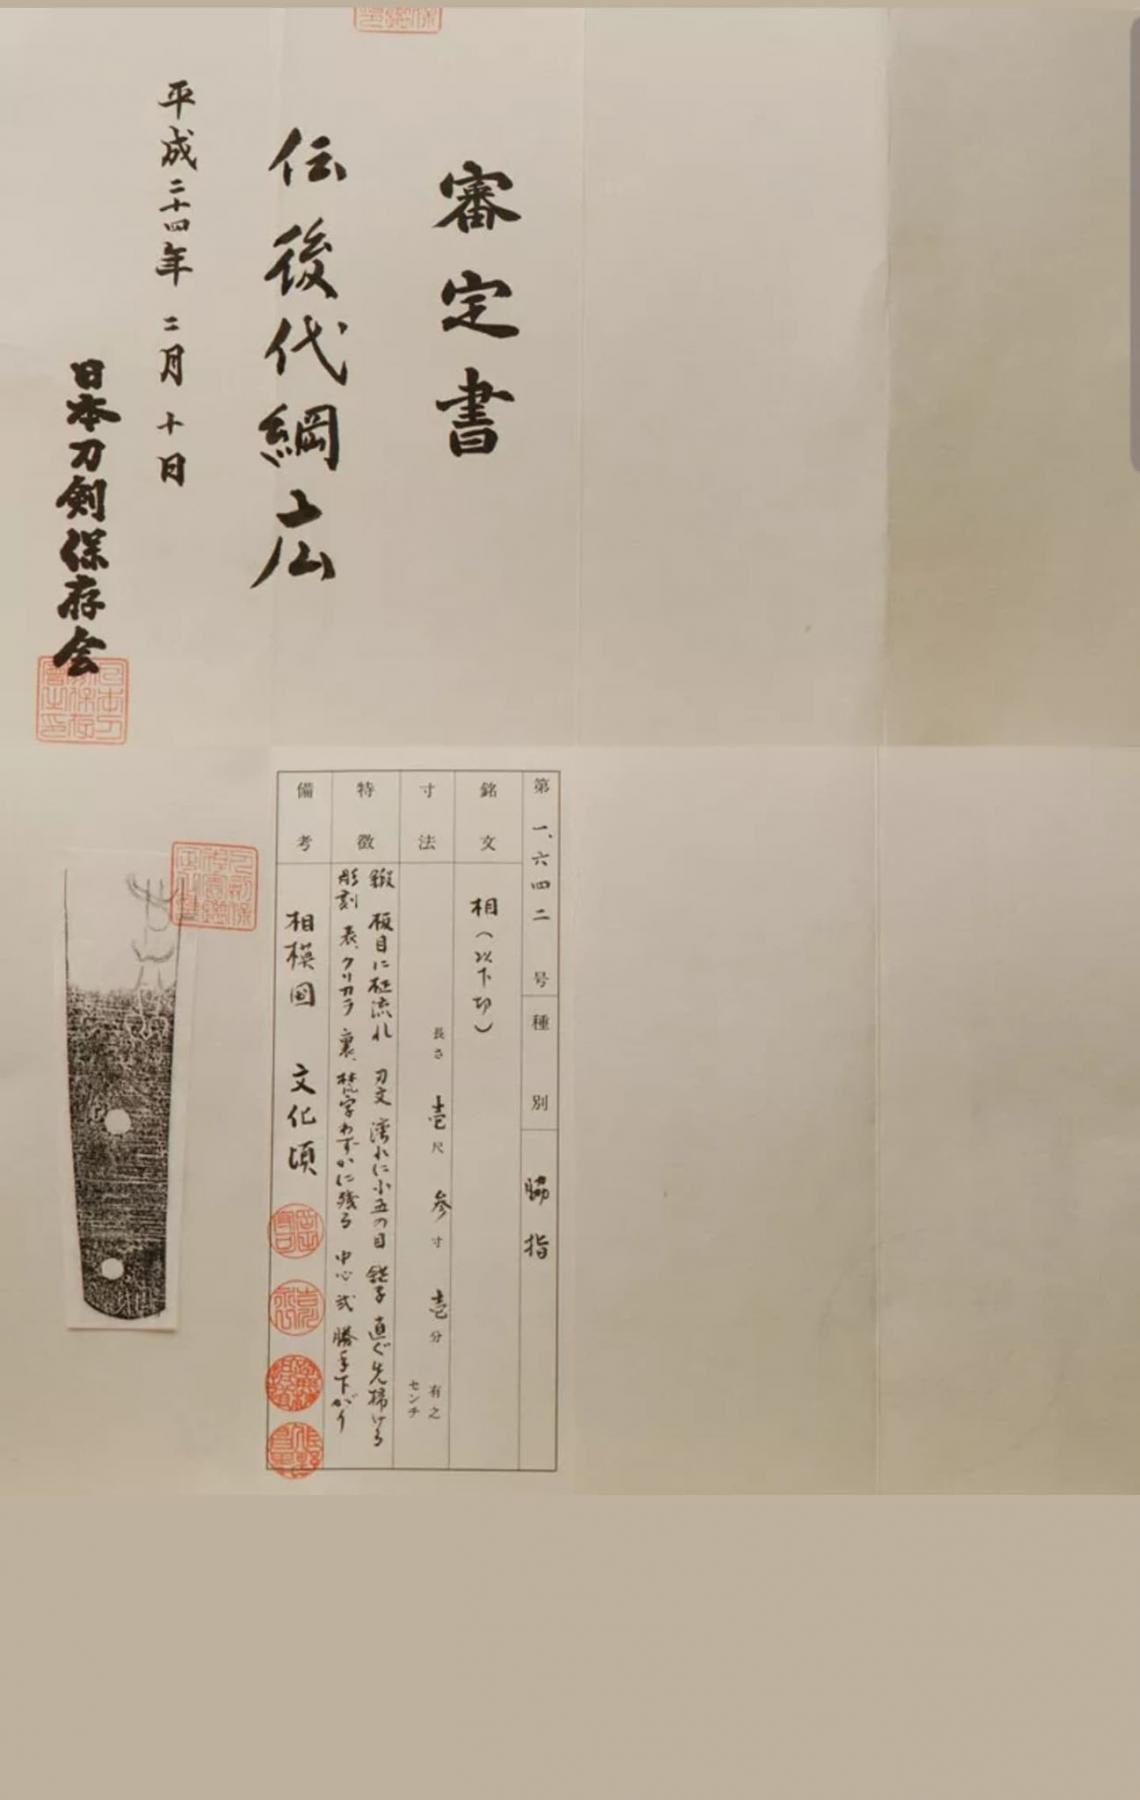 審定書
伝後代綱広
平成二十四年 二月 十日
日本刀剣保存会
第一、六四二号
種別 脇指
銘文 相(以下切)
寸法 長さ 壱尺 参寸 壱分 有之
センチ
特徴 鍛 板目に柾流れ 刃文 湾れに小五の目 鋩子 直ぐ先掃ける
彫刻 表、クリカラ 裏、梵字わずかに残る 中心 弐 勝手下がり
備考 相模国 文化頃